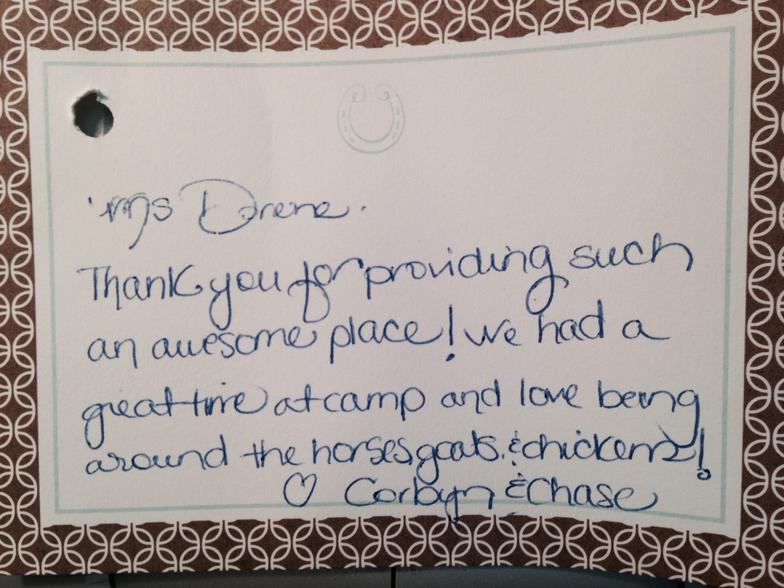 Ms Drene.
Thank you for providing such
an awesome place! we had a
great time at camp and love being
around the horses, goats, & chickens!
♡ Corbyn & Chase